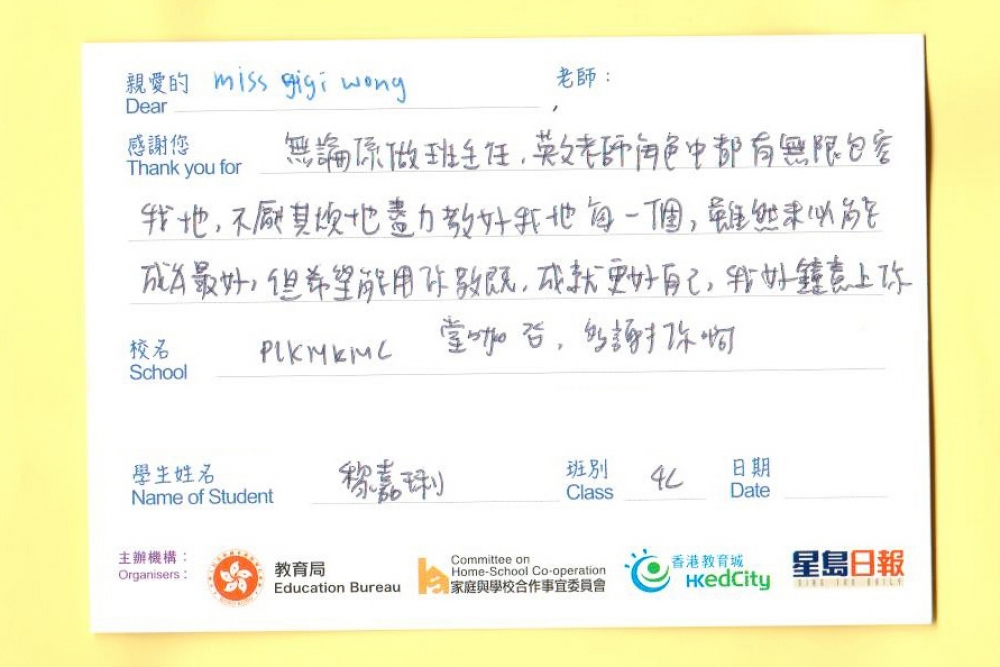 親愛的 miss gigi wong 老師：
Dear ,
感謝您 無論係做班主任，英文老師角色中都有無限包容
Thank you for
我地，不厭其煩地盡力教好我地每一個，雖然未必能
成為最好，但希望能用你教既，成就更好自己，我好鐘意上你
堂㗎，多謝你啊
校名 PLKMKMC
School
學生姓名 黎嘉琍 班別 4L 日期
Name of Student Class Date
主辦機構：
Organisers：
教育局
Education Bureau
Committee on
Home-School Co-operation
家庭與學校合作事宜委員會
香港教育城
HKedCity
星島日報
SING TAO DAILY